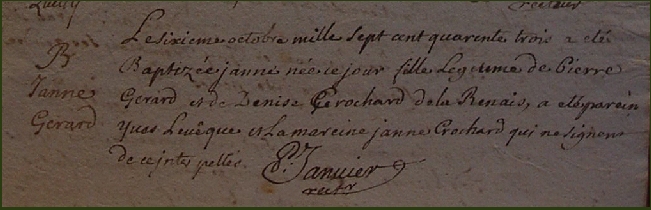 recteur
Le sixieme octobre mille sept cent quarente trois a eté
B
Baptizée janne née ce jour fille Legitime de Pierre
Janne
Gerard et de Denise Gerochard de la Renais, a eté parein
Gerard
Yves Levêque et La mareine janne Crochard qui ne signent
de ce interpellés.
P. Janvier
rectr